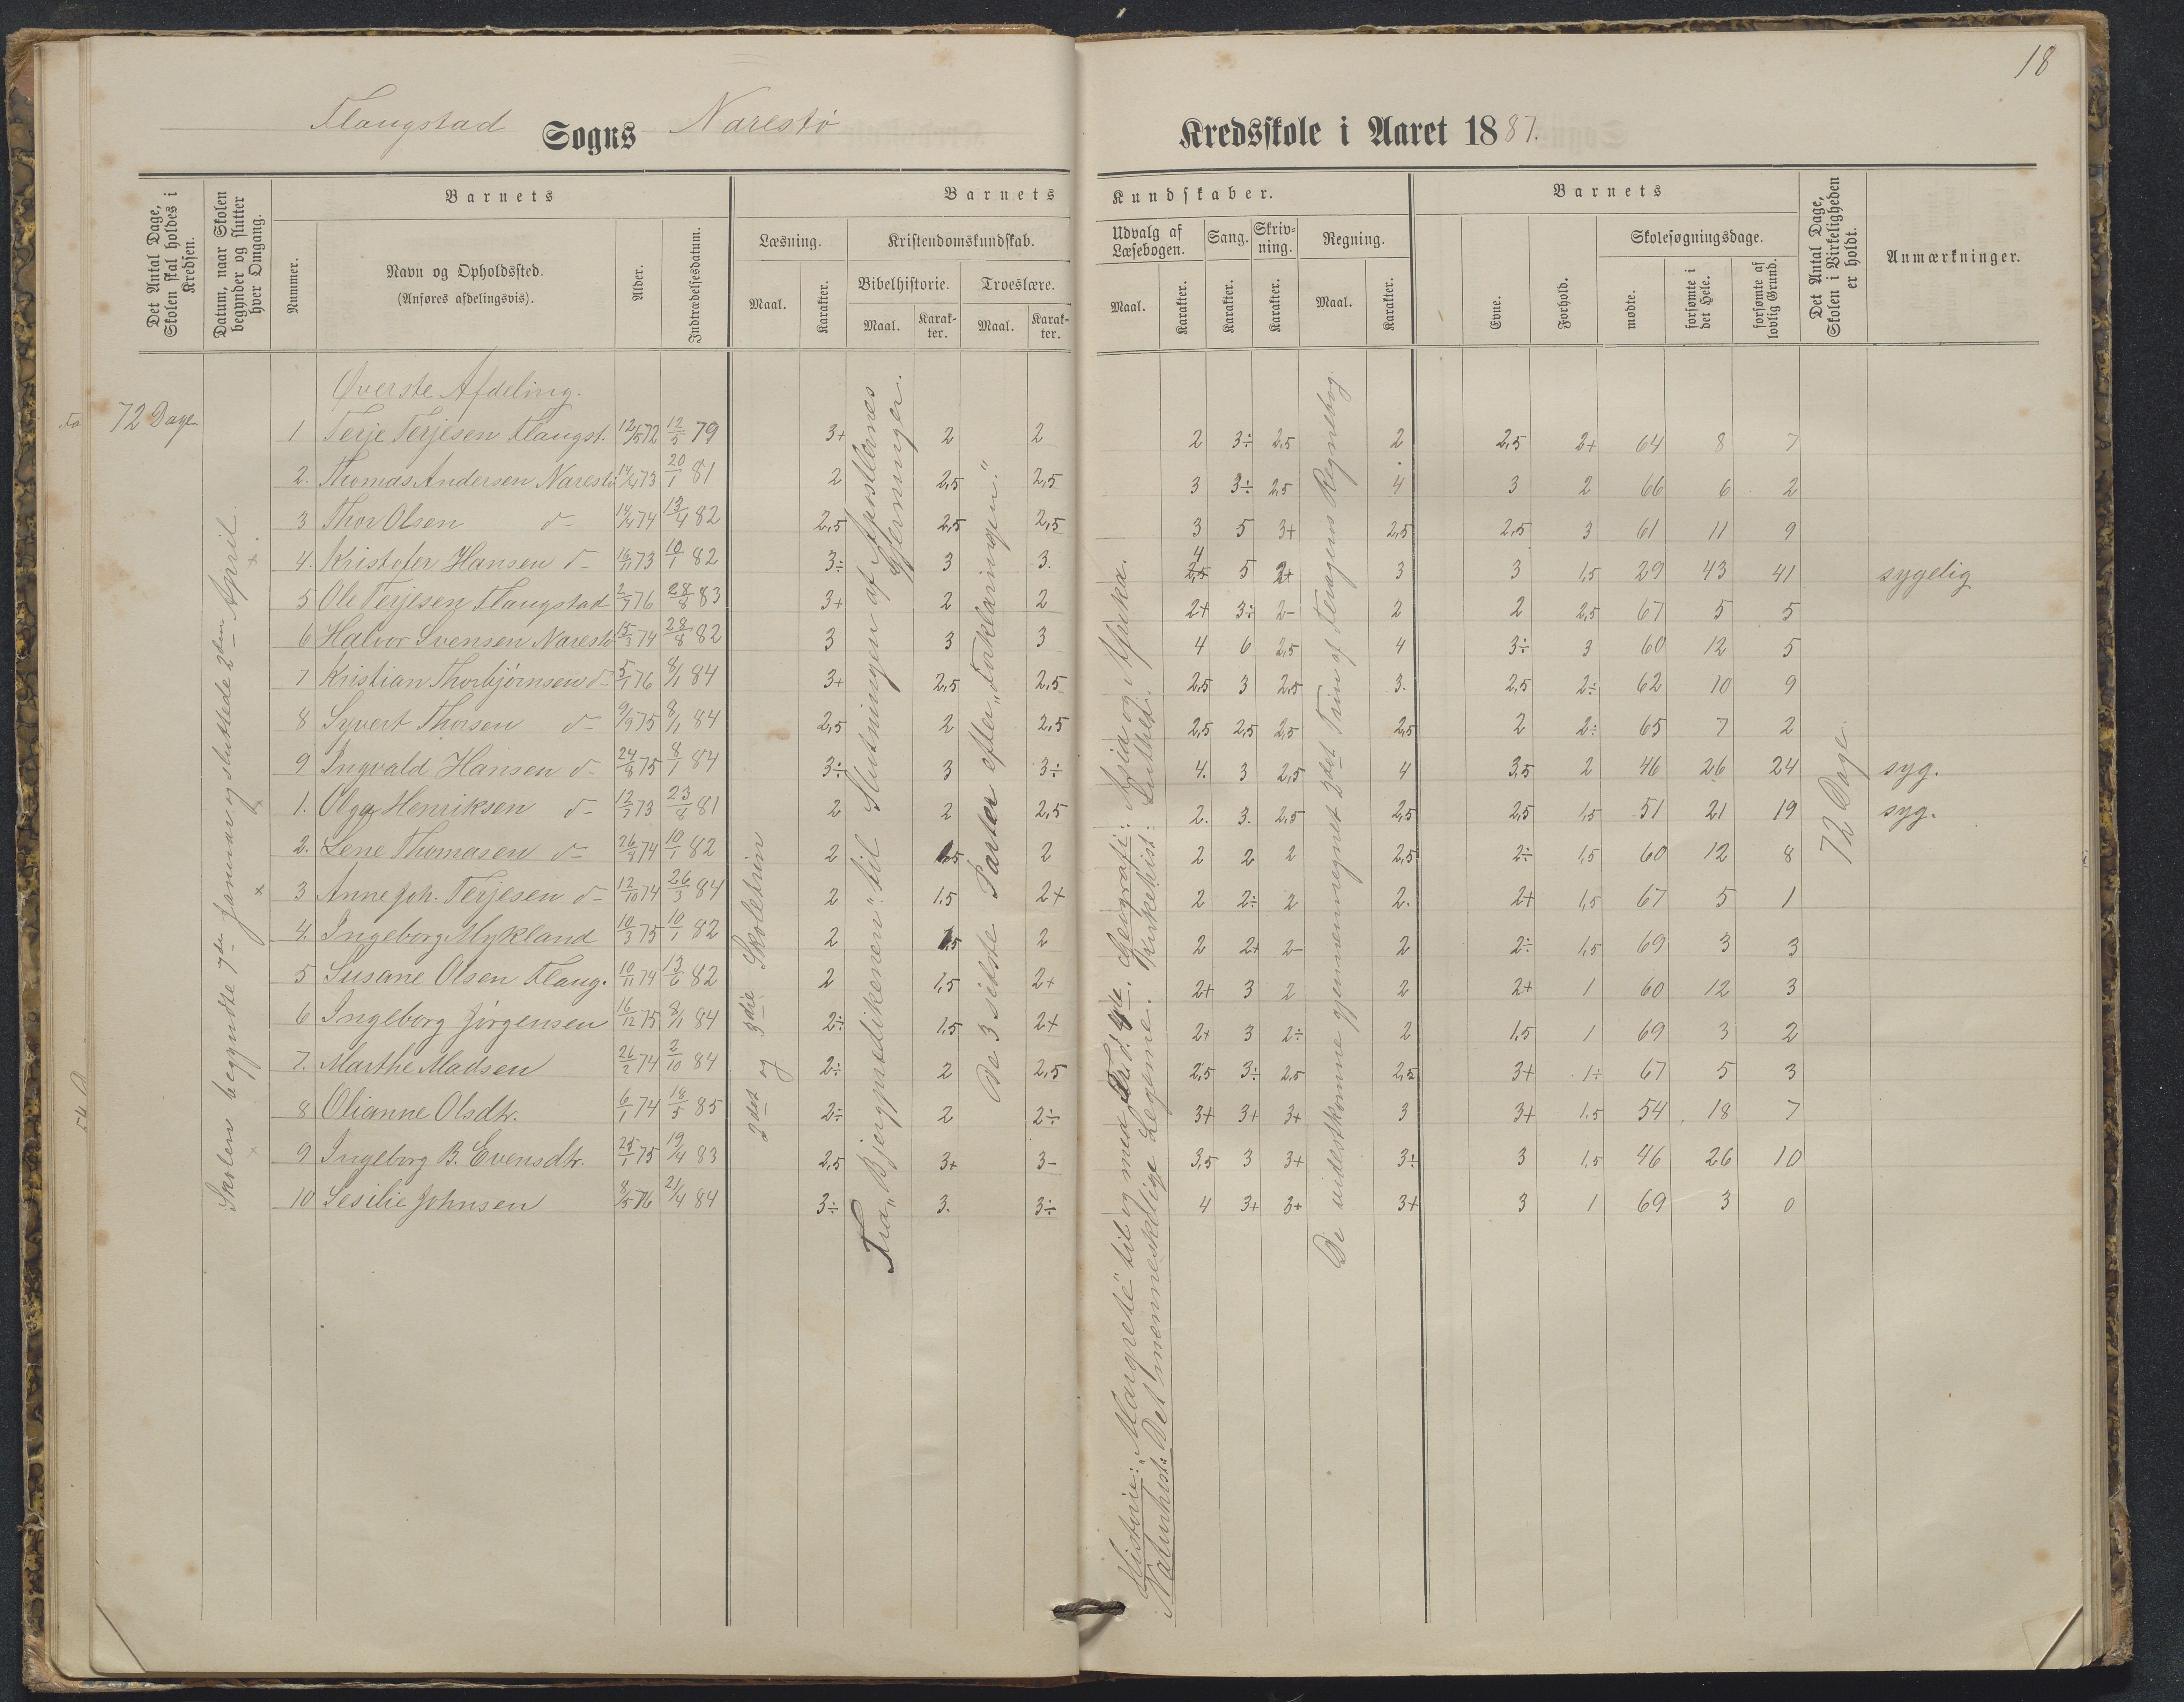 18
Flangstad Sogns Narestø Kredsskole i Aaret 1887.
Det Antal Dage, Skolen skal holdes i Kredsen.
Datum, naar Skolen begynder og slutter hver Omgang.
Barnets
Nummer.
Navn og Opholdssted.
(Anføres afdelingsvis).
Alder.
Indtrædelsesdatum.
Barnets Kundskaber.
Læsning.
Maal. Karakter.
Kristendomskundskab.
Bibelhistorie. Troeslære.
Maal. Karakter. Maal. Karakter.
Udvalg af Læsebogen.
Maal. Karakter.
Sang. Karakter.
Skrivning. Karakter.
Regning.
Maal. Karakter.
Barnets
Evne. Forhold.
Skolesøgningsdage.
mødte. forsømte i det Hele. forsømte af lovlig Grund.
Det Antal Dage, Skolen i Virkeligheden er holdt.
Anmærkninger.
72 Dage
Øverste Afdeling.
1 Terje Terjesen Flangst. 12/5 72 12/5 79 3+ 2 2 2 3÷ 2,5 2 2,5 2+ 64 8 7
2. Thomas Andersen Narestø 14/4 73 20/1 81 2 2,5 2,5 3 3÷ 2,5 4 3 2 66 6 2
3 Thor Olsen d- 14/4 74 13/4 82 2,5 2,5 2,5 3 5 3+ 2,5 2,5 3 61 11 9
4. Kristofer Hansen d- 16/11 73 10/1 82 3÷ 3 3. 4 5 2+ 3 3 1,5 29 43 41 sygelig
5 Ole Terjesen Flangstad 2/7 76 28/8 83 3+ 2 2 2+ 3÷ 2- 2 2 2,5 67 5 5
6 Halvor Svensen Narestø 15/3 74 28/8 82 3 3 3 4 6 2,5 4 3÷ 3 60 12 5
7 Kristian Thorbjørnsen d- 5/1 76 8/1 84 3+ 2,5 2,5 2,5 3 2,5 3. 2,5 2÷ 62 10 9
8 Syvert Thorsen d- 9/9 75 8/1 84 2,5 2 2,5 2,5 2,5 2,5 2,5 2 2÷ 65 7 2
9 Ingvald Hansen d- 24/8 75 8/1 84 3÷ 3 3÷ 4. 3 2,5 4 3,5 2 46 26 24 syg.
1. Olga Henriksen d- 12/7 73 23/8 81 2 2 2,5 2. 3. 2,5 2,5 2,5 1,5 51 21 19 syg.
2. Lene Thomasen d- 26/8 74 10/1 82 2 1,5 2 2 2 2 2,5 2÷ 1,5 60 12 8
3 Anne Joh. Terjesen d- 12/10 74 26/3 84 2 1,5 2+ 2 2÷ 2 2. 2+ 1,5 67 5 1
4. Ingeborg Mykland 10/3 75 10/1 82 2 1,5 2 2 2+ 2- 2 2÷ 1,5 69 3 3
5 Susane Olsen Flang. 10/11 74 13/6 82 2 1,5 2+ 2+ 3 2 2 2+ 1 60 12 3
6 Ingeborg Jørgensen 16/12 75 8/1 84 2÷ 1,5 2+ 2+ 3 2÷ 2 1,5 1 69 3 2
7. Marthe Madsen 26/2 74 2/10 84 2÷ 2 2,5 2,5 3÷ 2,5 2,5 3+ 1÷ 67 5 3
8 Olianne Olsdtr. 6/1 74 18/5 85 2÷ 2 2÷ 3+ 3+ 3+ 3 3+ 1,5 54 18 7
9 Ingeborg B. Evensdtr. 25/1 75 19/4 83 2,5 3+ 3- 3,5 3 3+ 3÷ 3 1,5 46 26 10
10 Sesilie Johnsen 8/5 76 21/4 84 3÷ 3. 3÷ 4 3+ 3+ 3+ 3 1 69 3 0
Skolen begyndte 7de Januar og sluttede 2den April.
2det og 3die Skoletrin
Fra „Bjergprædikenen" til Slutningen af Apostlernes Gjerninger.
De 3 sidste Parter efter „Forklaringen".
Historie: „Margrete" til og med Fred. 4de. Geografi: Asia og Afrika.
Naturhist. Det menneskelige Legeme. Kirkehist: Luther.
De videstkomne gjennemregnet 2det Trin af Feragens Regnebog.
72 Dage